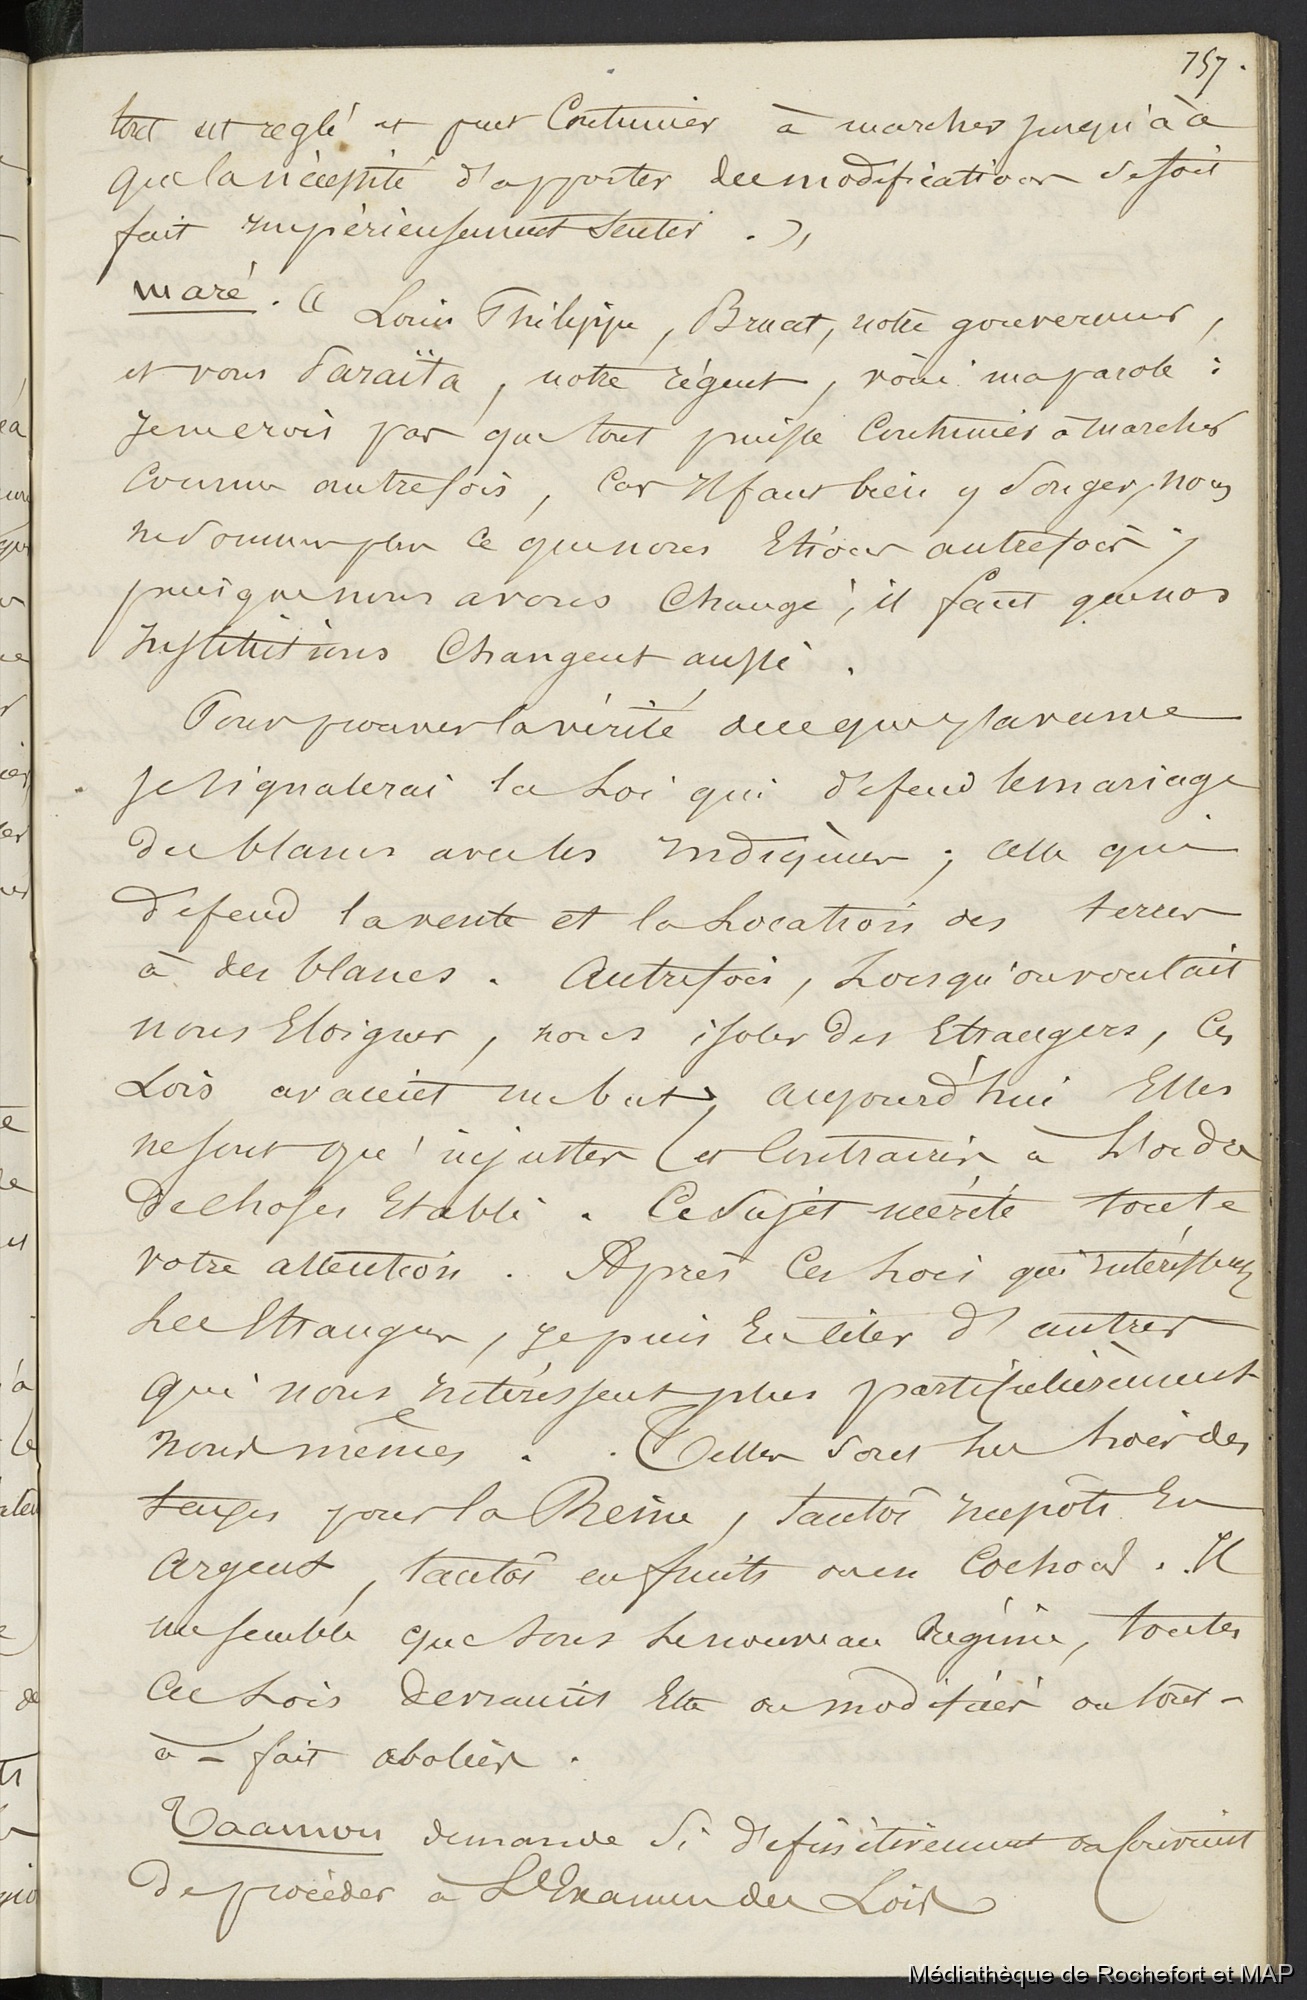 757.
tout est reglé et peut Continuer à marcher jusqu'à ce
que la nécessité d'apporter des modifications se soit
fait impérieusement sentir. »
Maré. « Louis Philippe, Bruat, notre gouverneur,
et vous Paraïta, notre régent, voici ma parole :
Je ne crois pas que tout puisse Continuer à marcher
Comme autrefois, Car Il faut bien y Songer, nous
ne Sommes plus Ce que nous Etions autrefois ;
puisque nous avons Changé, il faut que nos
Institutions Changent aussi.
Pour prouver la vérité de ce que j'avance
Je Signalerai la Loi qui défend le mariage
des blancs avec les Indigènes ; celle qui
défend la vente et la Location des terres
à des blancs. Autrefois, Lorsqu'on voulait
nous Eloigner, nous isoler des Etrangers, Ces
Lois avaient un but, aujourd'hui Elles
ne sont qu'injustes et Contraires à L'ordre
de choses Etabli. Ce Sujet mérite toute
votre attention. Après Ces Lois qui intéressent
Les Etrangers, je puis En citer d'autres
qui nous Intéressent plus particulièrement
nous mêmes. Telles sont les Lois des
pour la Reine, tantôt impôts En
Argent, tantôt en fruits ou en Cochons. Il
me semble que sous Le nouveau Régime, toutes
Ces Lois devraient Etre ou modifiées ou tout-
à-fait abolies.
Taamou demande Si définitivement on Convient
de procéder à L'Examen des Lois